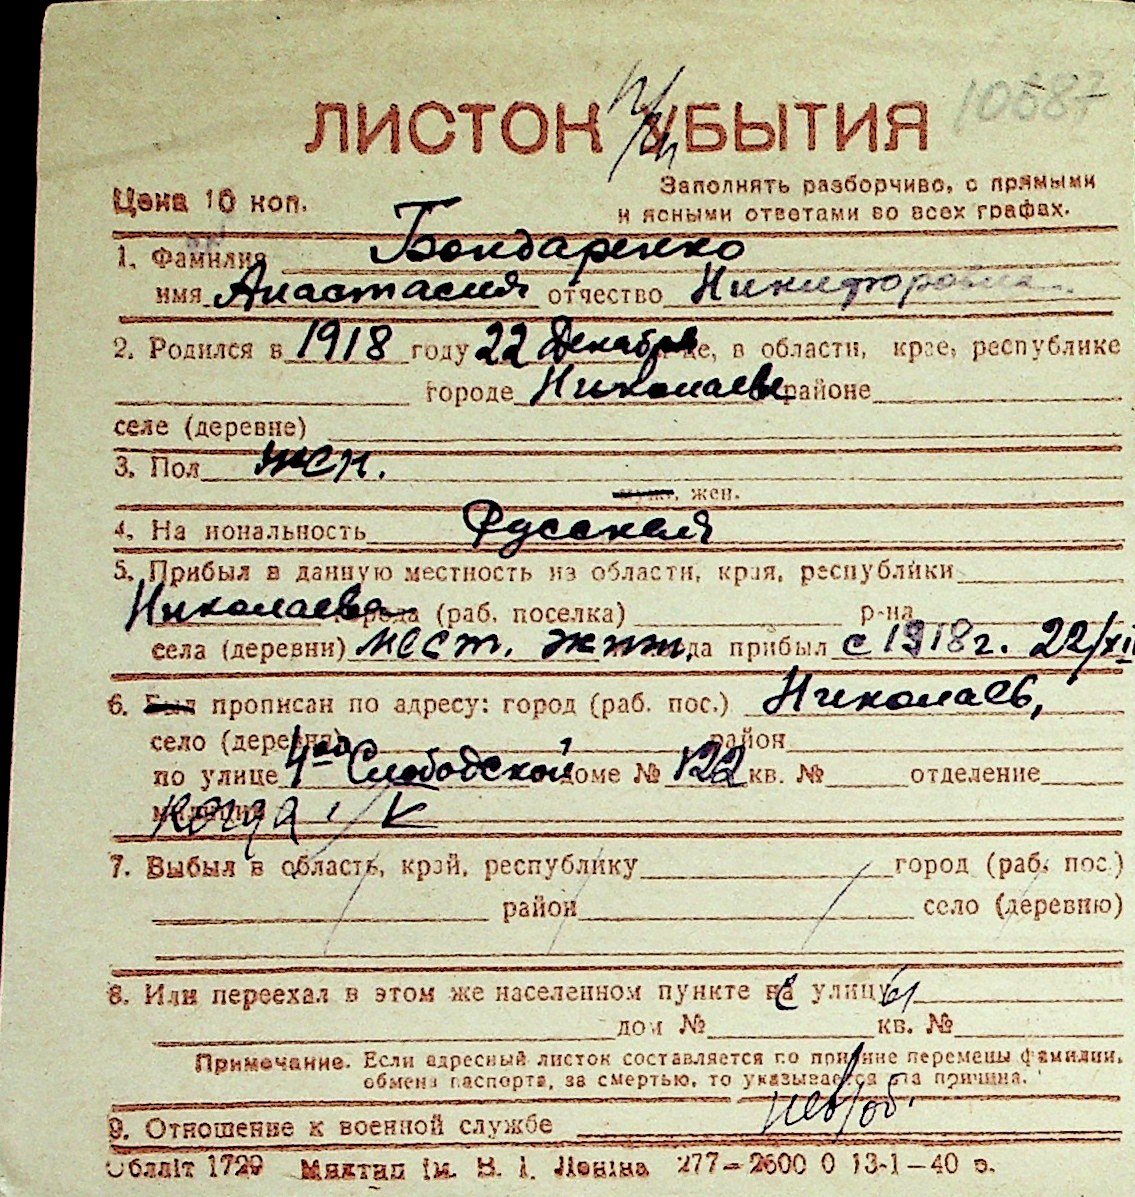 10687
ЛИСТОК УБЫТИЯ
Цена 10 коп.
Заполнять разборчиво, с прямыми
и ясными ответами во всех графах.
1. Фамилия Бондаренко
имя Анастасия отчество Никифоровна
2. Родился в 1918 году 22 Декабря це, в области, крае, республике
городе Николаеве районе
селе (деревне)
3. Пол жен.
муж., жен.
4. На иональность Русская
5. Прибыл в данную местность из области, края, республики
Николаева города (раб. поселка) р-на
села (деревни) мест. жит. да прибыл с 1918 г. 22/XII
6. Был прописан по адресу: город (раб. пос.) Николаев,
село (деревня) район
по улице 4ая Слободской доме № 122 кв. № отделение
милиции
7. Выбыл в область, край, республику город (раб. пос.)
район село (деревню)
8. Или переехал в этом же населенном пункте на улицу
дом № кв. №
Примечание. Если адресный листок составляется по причине перемены фамилии,
обмена паспорта, за смертью, то указывается эта причина.
9. Отношение к военной службе нев/об.
Обліт 1729 Миктип ім. В. І. Леніна 277—2600 0 13-1—40 р.